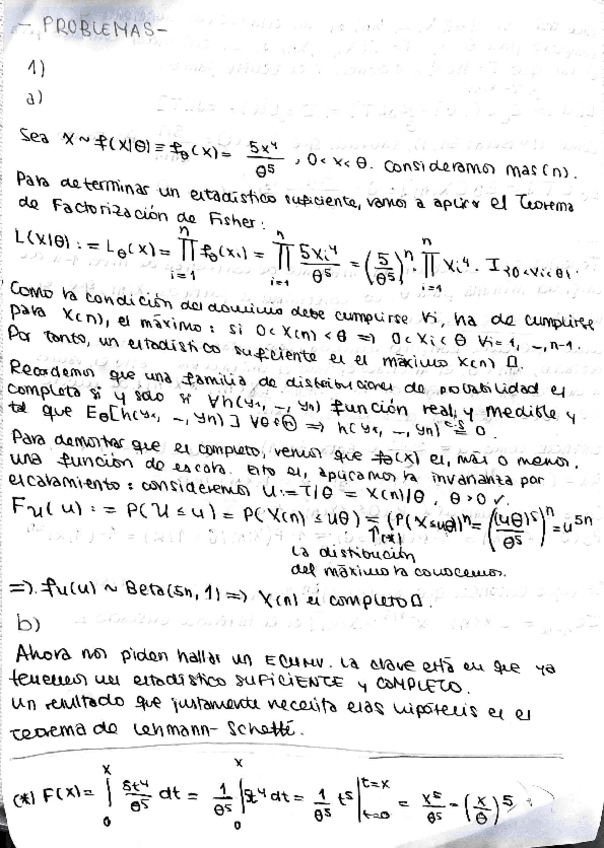 - PROBLEMAS -
1)
a)
Sea X ~ f(x|θ) ≡ f_θ(x) = 5x⁴/θ⁵ , 0 < x < θ. Consideramos mas(n).
Para determinar un estadístico suficiente, vamos a aplicar el Teorema
de Factorización de Fisher:
L(x|θ) := L_θ(x) = ∏_{i=1}^{n} f_θ(x_i) = ∏_{i=1}^{n} 5x_i⁴/θ⁵ = (5/θ⁵)^n · ∏_{i=1}^{n} x_i⁴ · I_{{0<x_i<θ}}
Como la condición del dominio debe cumplirse ∀i, ha de cumplirse
para X(n), el máximo: si 0 < X(n) < θ ⇒ 0 < x_i < θ ∀i=1, –, n-1.
Por tanto, un estadístico suficiente es el máximo X(n) □.
Recordemos que una familia de distribuciones de probabilidad es
completa si y solo si ∀h(y₁, –, yn) función real, y medible y
tal que E_θ[h(y₁, –, yn)] ∀θ∈Θ ⇒ h(y₁, –, yn) c.s.= 0.
Para demostrar que es completo, vemos que f_θ(x) es, más o menos,
una función de escala. Esto es, aplicamos la invarianza por
escalamiento: consideremos U := T/θ = X(n)/θ , θ > 0 ✓.
F_U(u) := P(U ≤ u) = P(X(n) ≤ uθ) = (P(X≤uθ))^n = ((uθ)⁵/θ⁵)^n = u^{5n}
↑(*)
la distribución
del máximo la conocemos.
⇒ f_U(u) ~ Beta(5n, 1) ⇒ X(n) es completo □.
b)
Ahora nos piden hallar un ECUMV. La clave está en que ya
tenemos un estadístico SUFICIENTE y COMPLETO.
Un resultado que justamente necesita esas hipótesis es el
Teorema de Lehmann-Scheffé.
(*) F(x) = ∫₀^x 5t⁴/θ⁵ dt = 1/θ⁵ ∫₀^x 5t⁴ dt = 1/θ⁵ t⁵ |_{t=0}^{t=x} = x⁵/θ⁵ = (x/θ)⁵